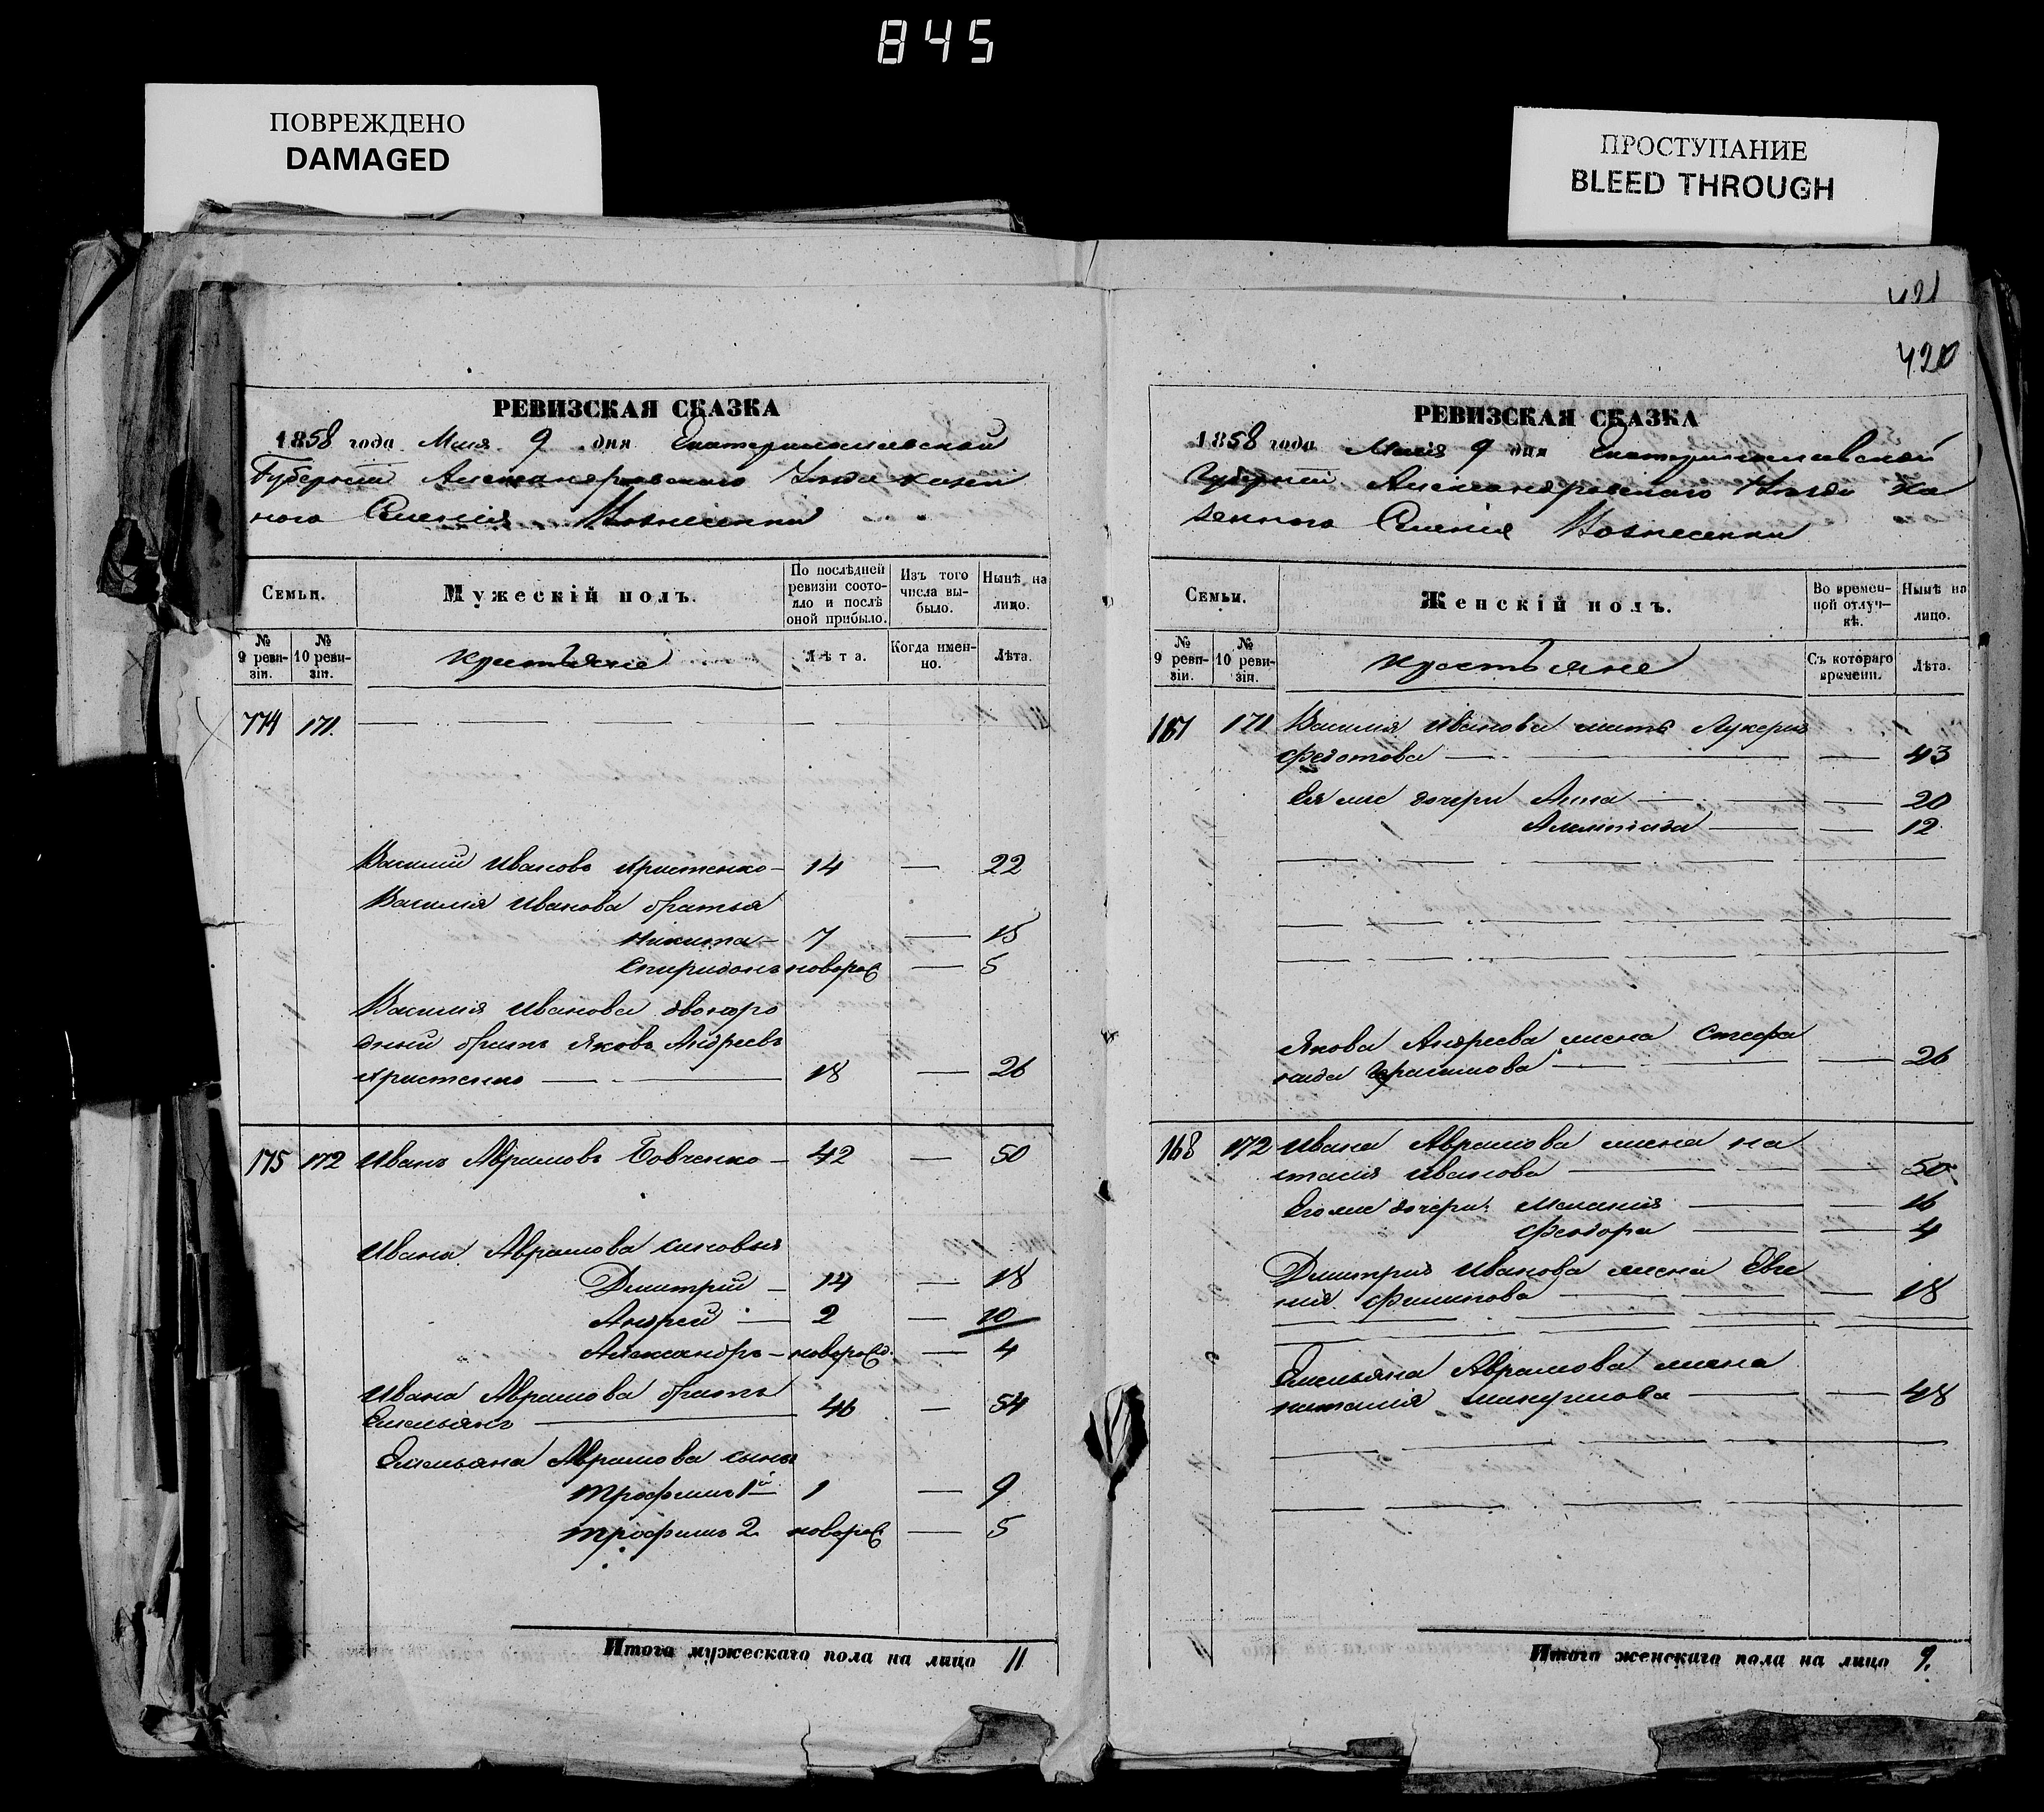 845
ПОВРЕЖДЕНО
DAMAGED
ПРОСТУПАНИЕ
BLEED THROUGH
421
420
РЕВИЗСКАЯ СКАЗКА
1858 года Мая 9 дня Екатеринославской
Губернии Александровского Уезда казен
ного Селения Вознесенки
Семьи.
Мужескій полъ.
По послѣдней ревизіи состояло и послѣ оной прибыло.
Изъ того числа выбыло.
Нынѣ на лицо.
№ 9 ревизіи.
№ 10 ревизіи.
крестьяне
Лѣта.
Когда именно.
Лѣта.
174 171.
Василий Ивановъ Христенко 14 — 22
Василия Иванова братья
Никита 7 — 15
Спиридонъ новорож — 5
Василия Иванова двоюро
дный братъ Яковъ Андреевъ
Христенко — 18 — 26
175 172 Иванъ Аврамовъ Бовченко — 42 — 50
Ивана Аврамова сыновья
Дмитрий — 14 — 18
Андрей — 2 — 10
Александръ — новорожд. — 4
Ивана Аврамова братъ
Емельянъ — 46 — 54
Емельяна Аврамова сыны
Трофимъ 1й 1 — 9
Трофимъ 2 новорож — 5
Итого мужескаго пола на лицо 11
РЕВИЗСКАЯ СКАЗКА
1858 года Маія 9 дня Екатеринославской
Губернии Александровского Уезда Ка
зенного Селения Вознесенки
Семьи.
Женскій полъ.
Во временной отлучкѣ.
Нынѣ на лицо.
№ 9 ревизіи.
№ 10 ревизіи.
крестьяне
Съ котораго времени.
Лѣта.
167 171 Василия Иванова мать Лукерия
Федотова — — 43
Ея же дочери Анна — — 20
— — 12
Якова Андреева жена Стефа
нида Герасимова — — 26
168 172 Ивана Аврамова жена На
талия Иванова — — 50
Его же дочери: Мелания — — 16
Феодора — 4
Дмитрия Иванова жена Евге
ния Филипова — — 18
Емельяна Аврамова жена
Наталия — — 48
Итого женскаго пола на лицо 9.